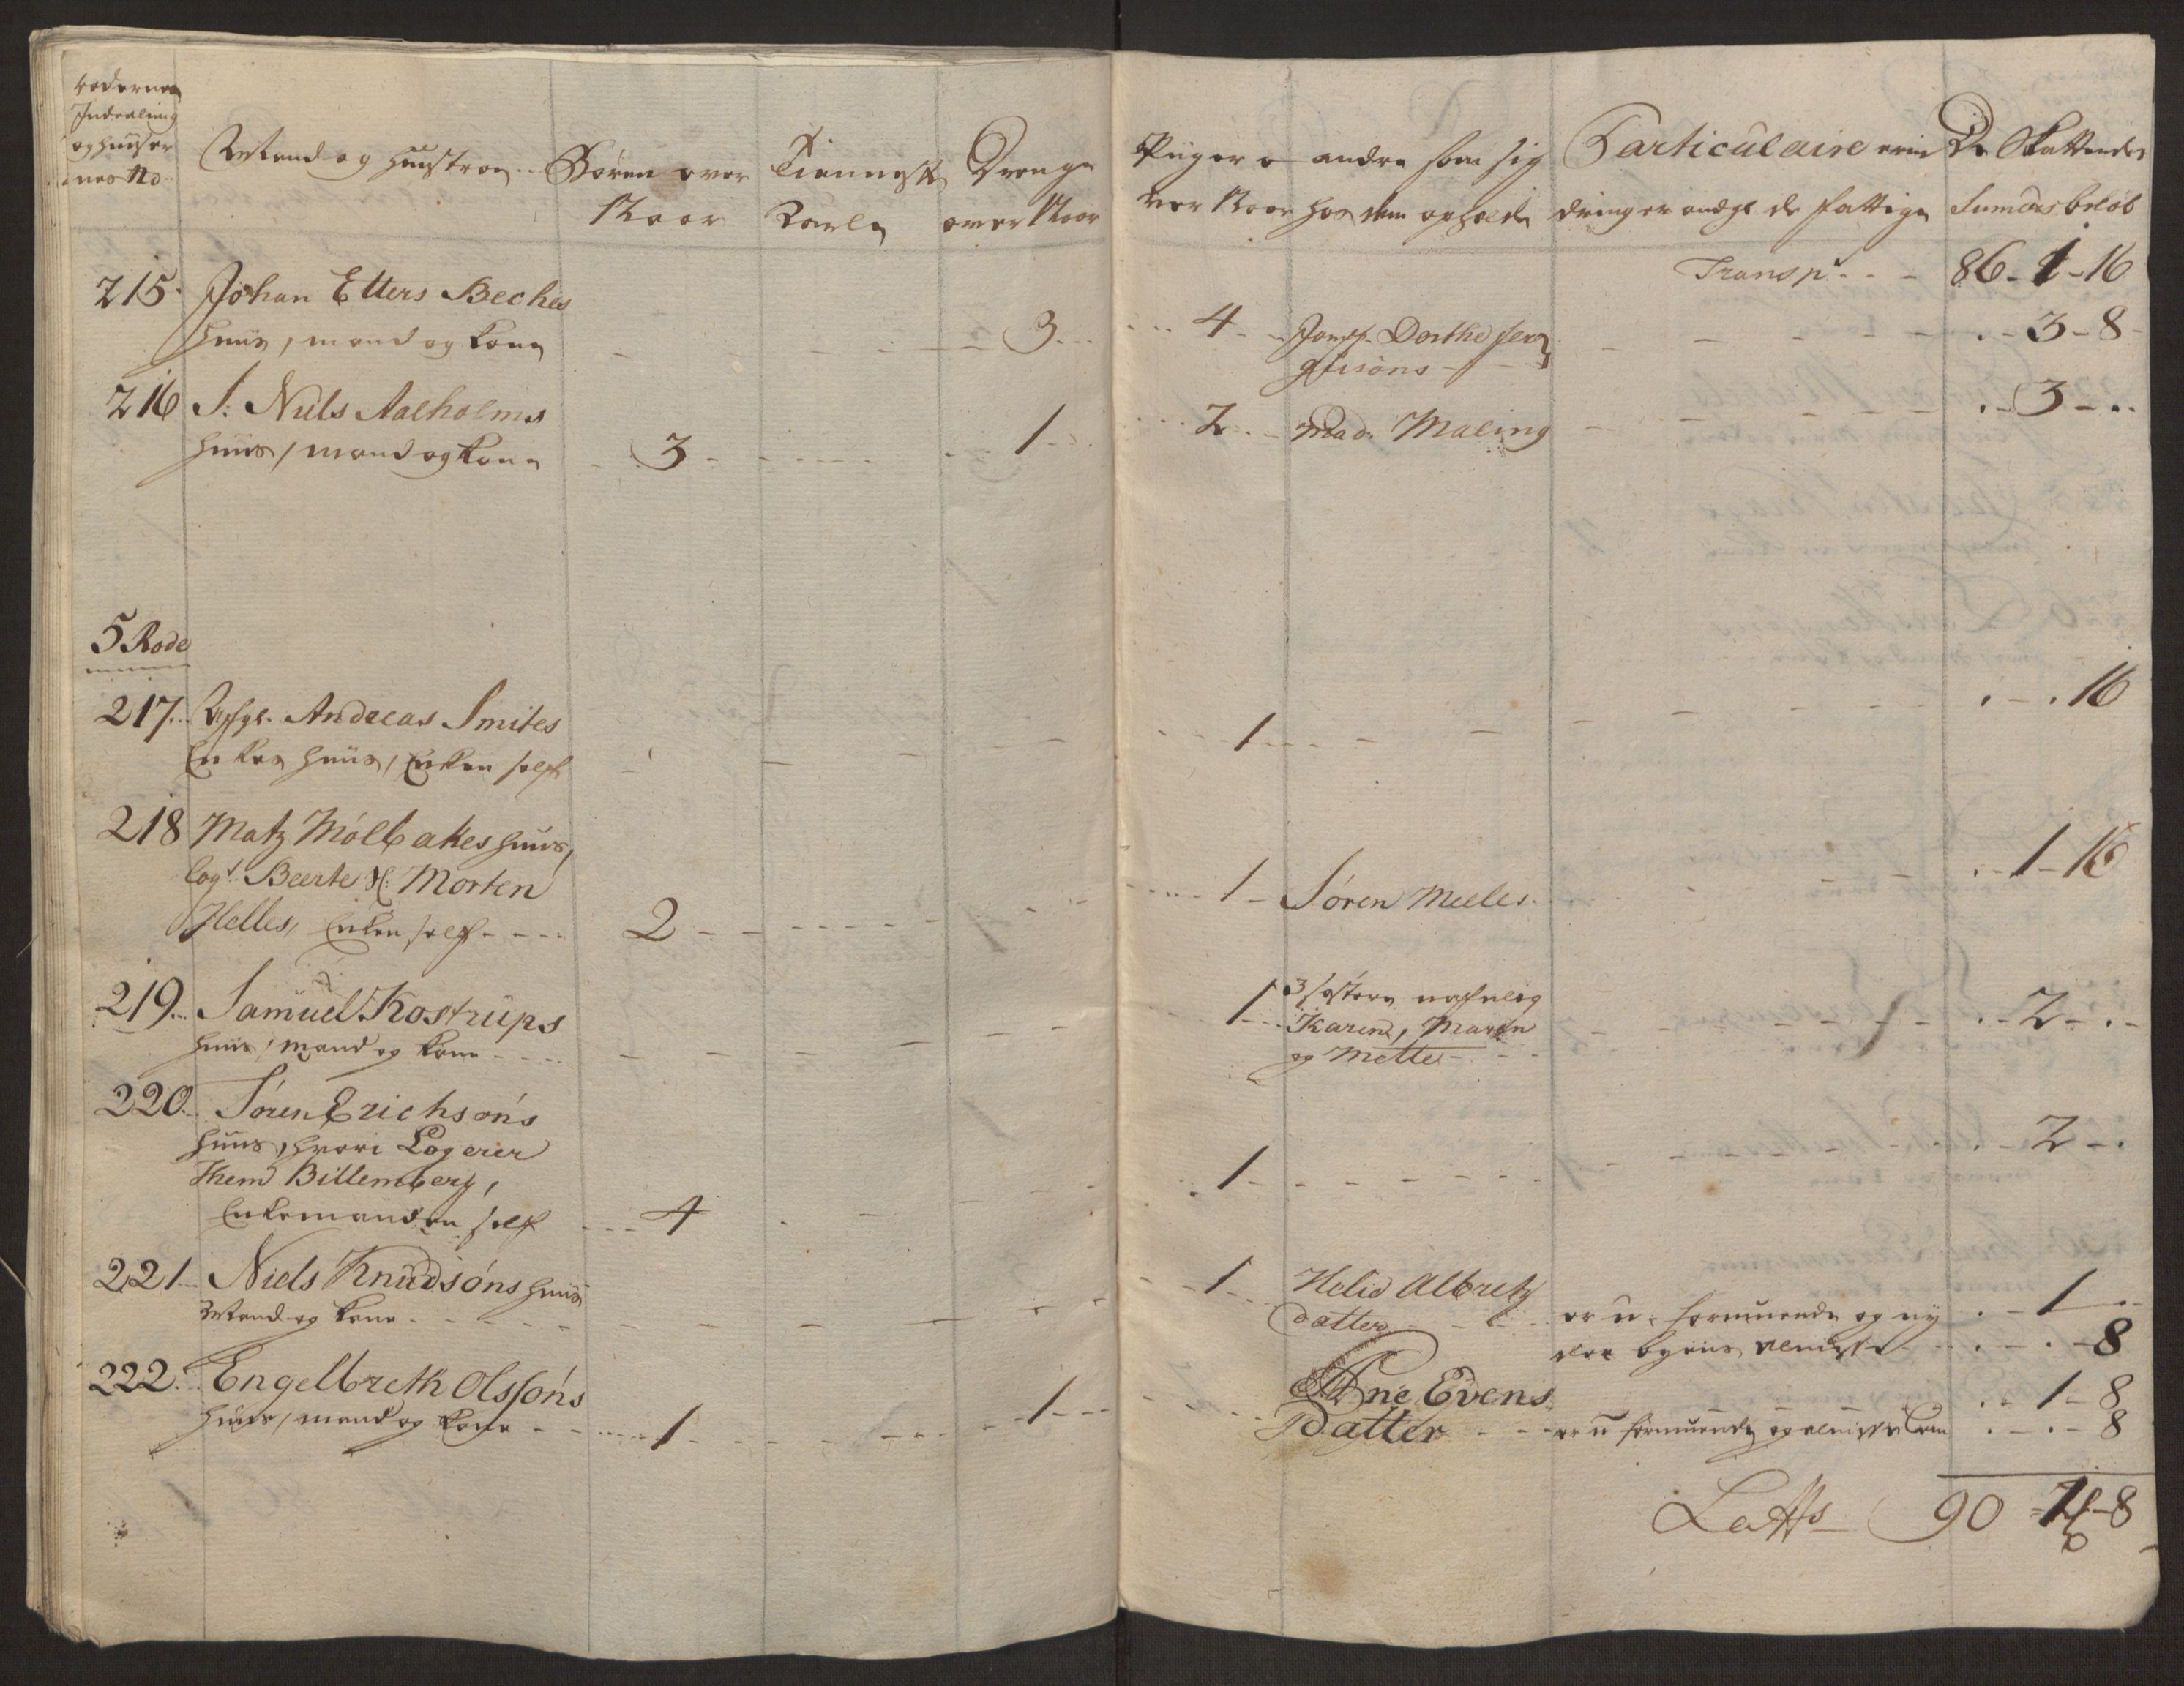 Rodernes
Inddeeling
og huuser
nes No
Mænd og hustroe
Børn over
12 Aar
Tienneste
Karle
Drenge
over 12 Aar
Piiger o
ver 12 Aar
andre som sig
hos dem opholde
Particulaire erin
dringer andgl de fattige
De Skattendes
Sumes beløb
Transpt 86-1-16
215 Johan Etters Beches
huus, mand og kone - 3 - 4 - Jomf. Dorthe - 3-8
216 S: Niels Aalholms
huus, mand og kone 3 - 1 - 2 - Mad: Maling - 3 -
5 Rode
217. Andreas Smites
Enkes huus, Enken self - 1 - 16
218 Matz Mölbakes huus,
Logt Beerte Sl: Morten
Helles, Enken self - 2 - 1 - Sören Meeles - 1-16
219 Samuel Kostrups
huus, mand og kone - 1 - 3 søstere nafnlig
Karen, Maren
og Mette - 2 -
220. Søren Erichsøns
huus, hvori Logerer
Them Billemberg,
Enkemanden self - 4 - 1 - 2 -
221 Niels Knudsøns huus
Mand og kone - 1 - Helie Albretz
datter - er u-formuende og ny
- 1 -
- 8
222. Engelbreth Olssøns
huus, mand og kone - 1 - 1 - Ane Evens
Datter - er u formuende og - 1-8
- 8
Latts 90 - 1-8